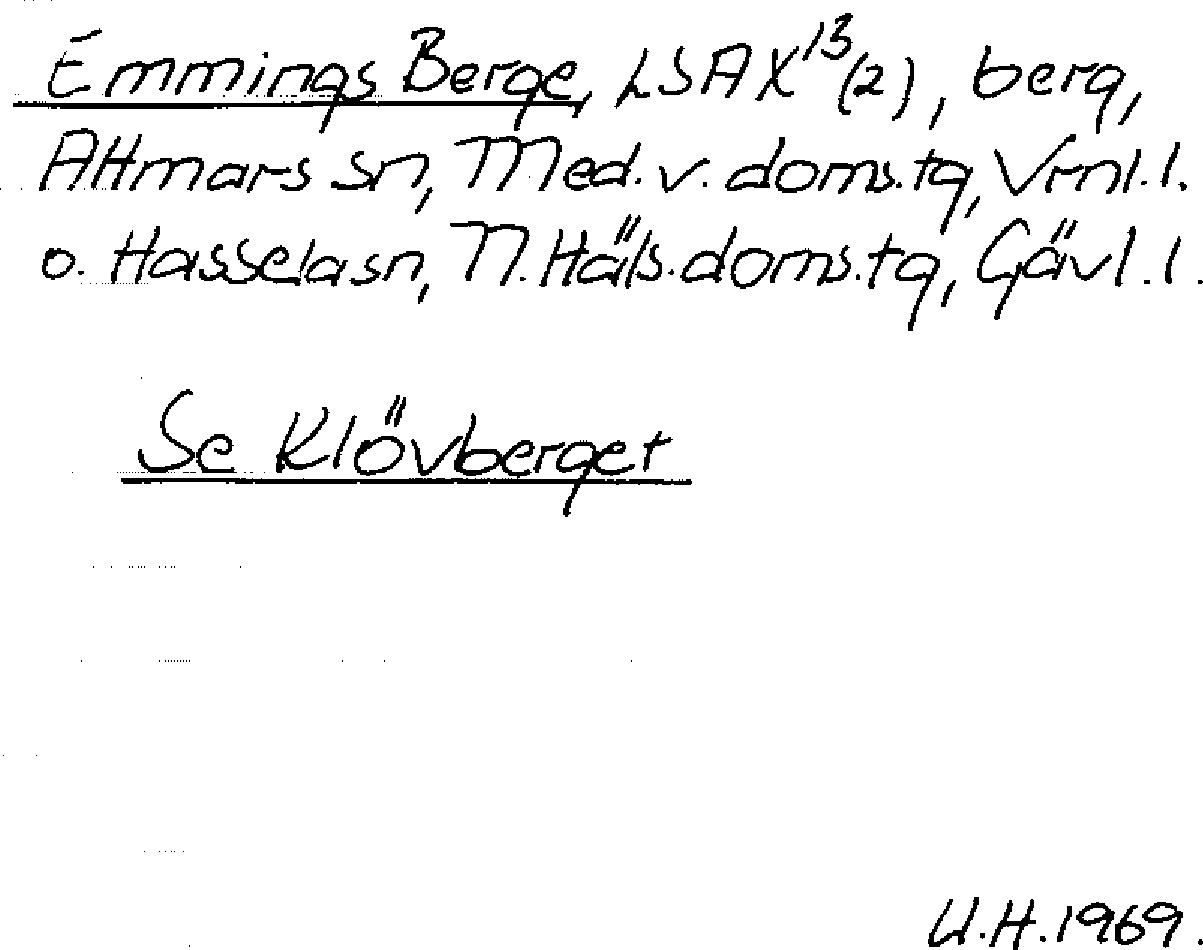 Emmings Berge, LSA X¹³(2), berg,
Attmars sn, Med. v. doms.tg, Vrnl. l.
o. Hassela sn, N. Häls. doms.tg, Gävl. l.
Se Klövberget
U.H. 1969.